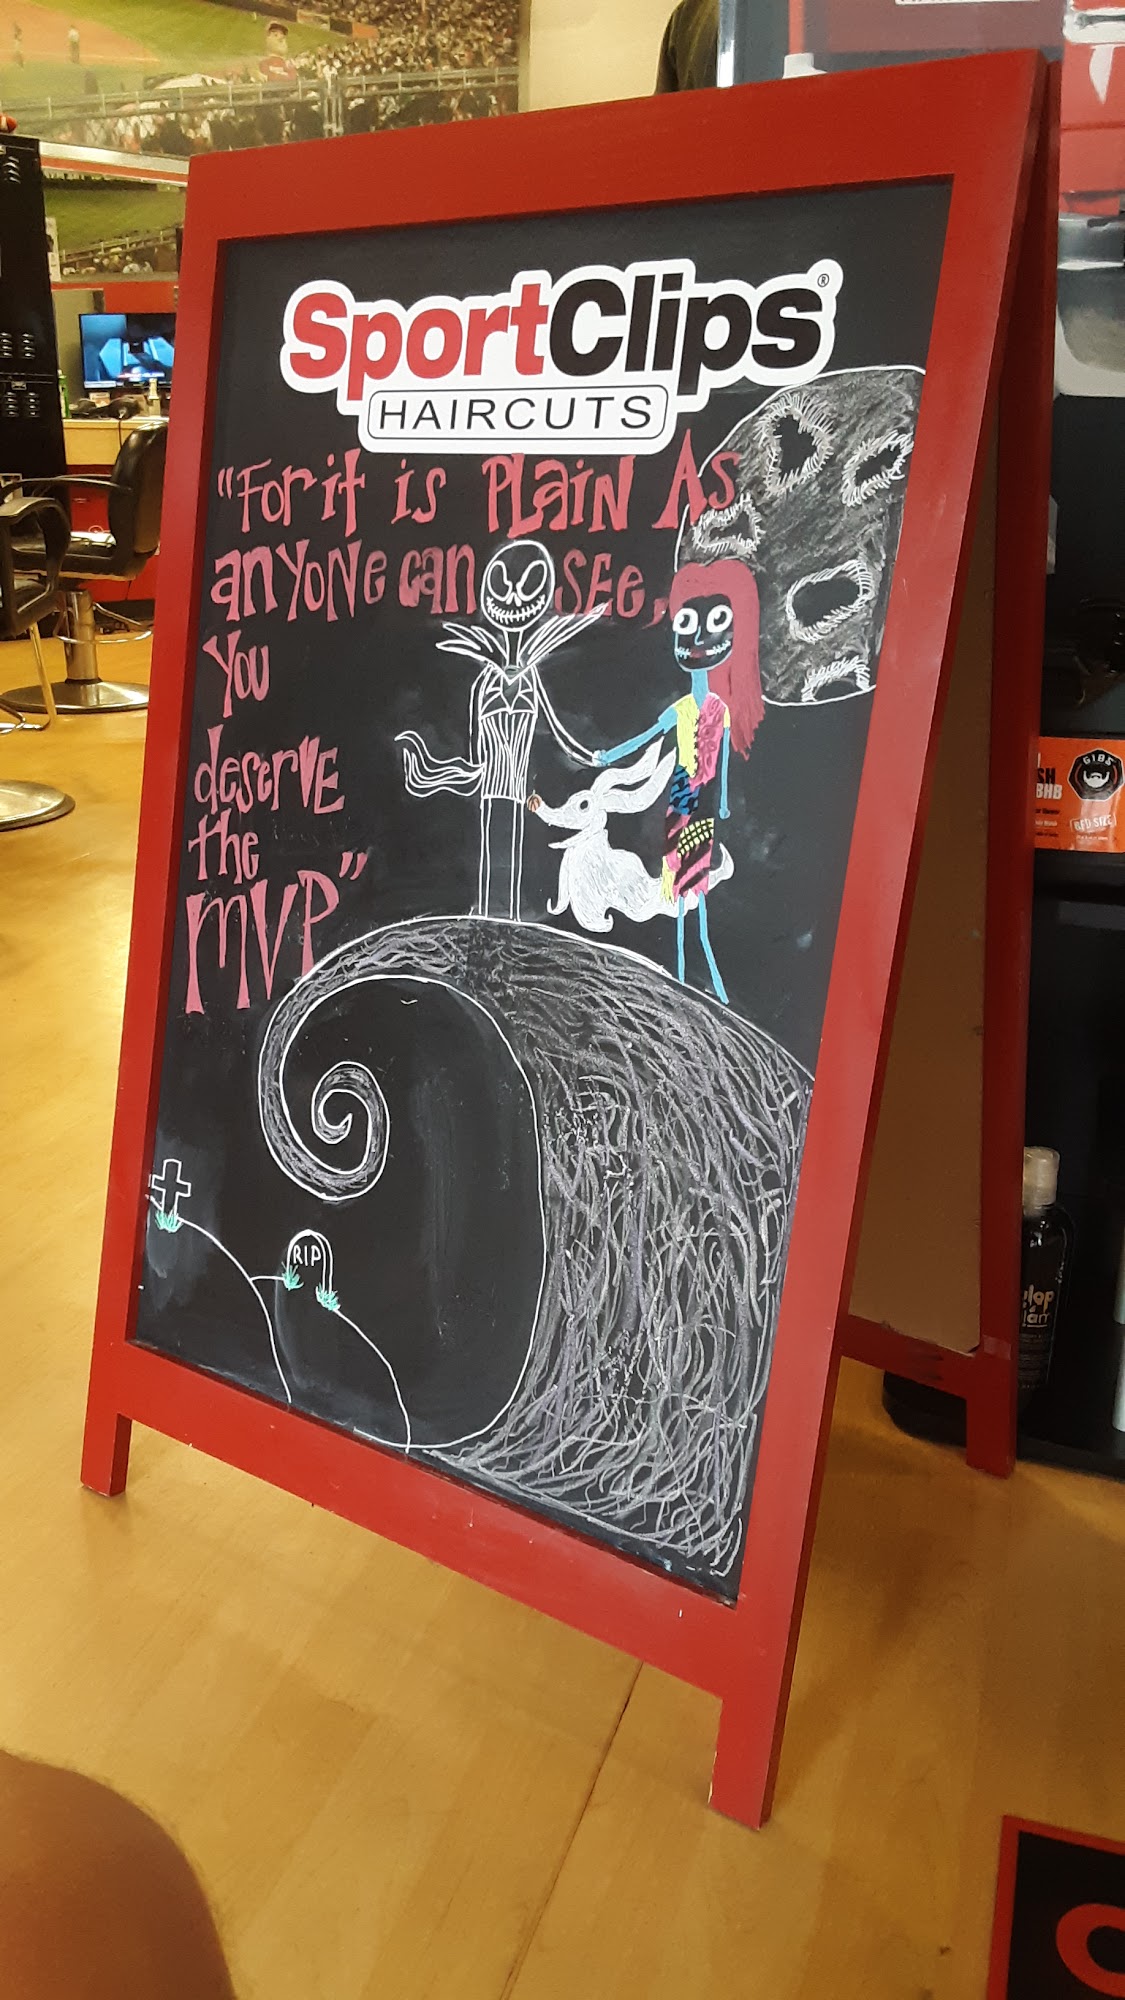 SportClips®
HAIRCUTS
"For it is Plain As
anyone can see,
you
deserve
the
MVP"
RIP
GIBS